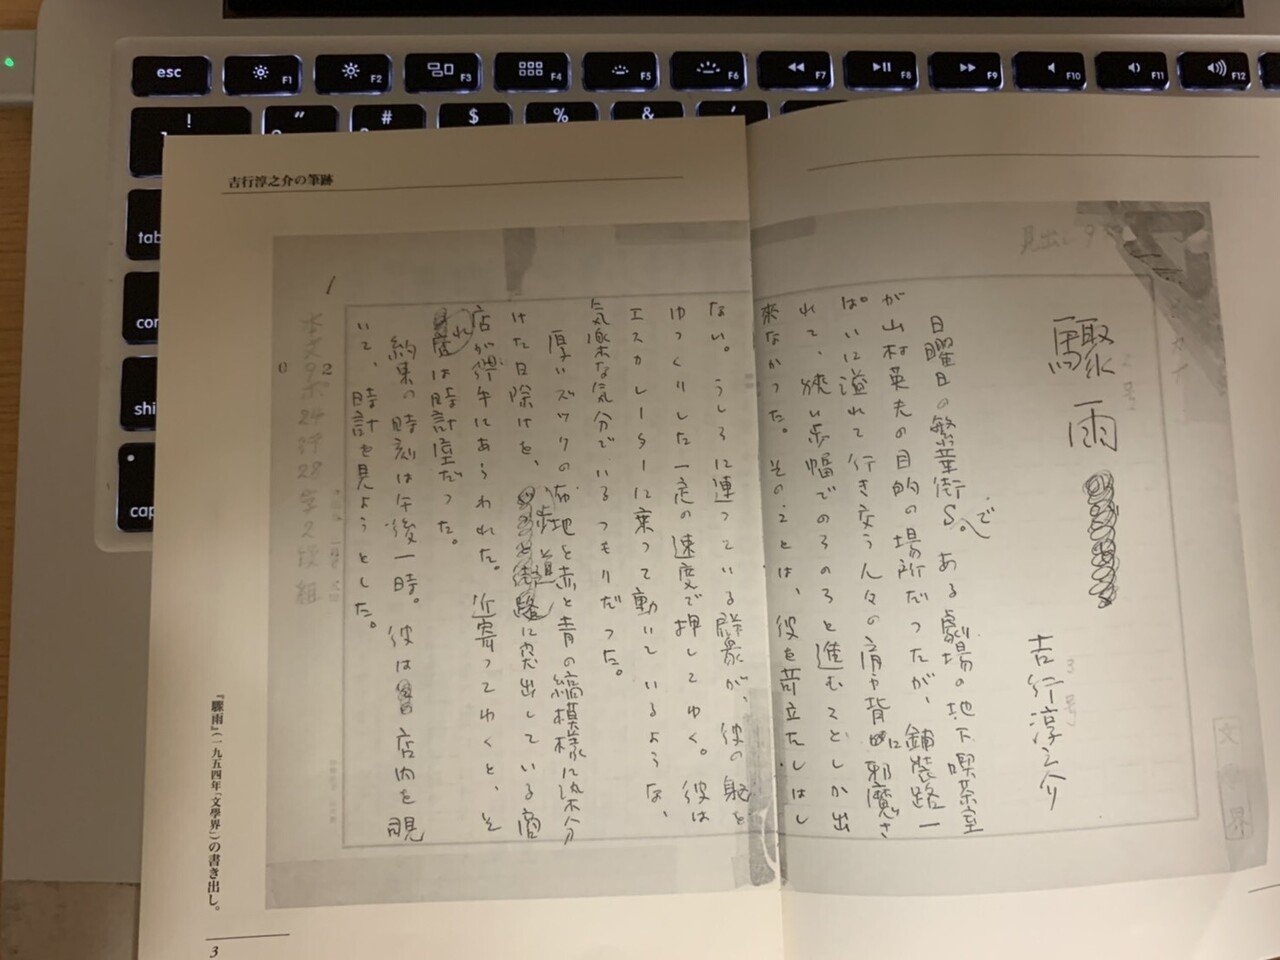 esc
F1
F2
F3
F4
F5
F6
F7
F8
F9
F10
F11
F12
!
"
#
$
%
&
tab
caps
吉行淳之介の筆跡
見出し9
驟雨
吉行淳之介
日曜日の繁華街S。で ある劇場の地下喫茶室
が山村英夫の目的の場所だったが、舗装路一
ぱいに溢れて行き交う人々の肩や背に邪魔さ
れて、狭い歩幅でのろのろと進むことしか出
来なかった。そのことは、彼を苛立たしはし
ない。うしろに連っている群衆が、彼の軀を
ゆっくりした一定の速度で押してゆく。彼は
エスカレーターに乗って動いているような、
気楽な気分でいるつもりだった。
厚いズックの布地を赤と青の縞模様に染分
けた日除けを、歩道に突出している商
店が にあらわれた。近寄ってゆくと、そ
れは時計屋だった。
約束の時刻は午後一時。彼は店内を覗
いて、時計を見ようとした。
1
本文9ポ24行28字2段組
『驟雨』(一九五四年「文學界」)の書き出し。
3